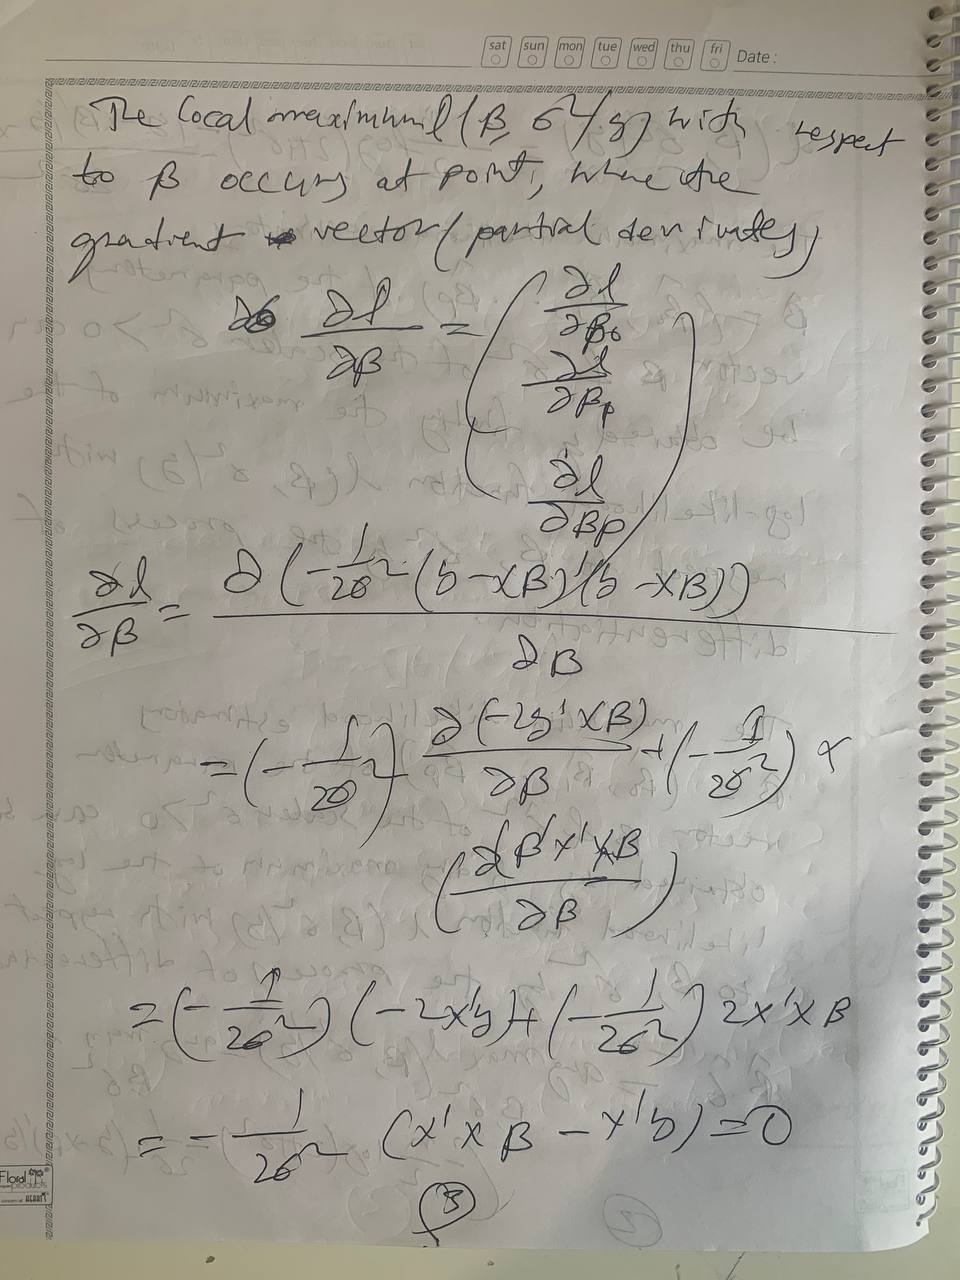 sat sun mon tue wed thu fri Date :
The local maximum l(β, σ²/y) with respect
to β occurs at point, where the
gradient vector (partial derivates)
∂l/∂β = ( ∂l/∂β₀
∂l/∂βp
∂l/∂βp )
∂l/∂β = ∂(-1/2σ² (y-Xβ)'(y-Xβ)) / ∂β
= (-1/2σ²) ∂(-2y'Xβ)/∂β + (-1/2σ²) ×
(∂β'X'Xβ/∂β)
= (-1/2σ²) (-2x'y) + (-1/2σ²) 2x'xβ
= -1/2σ² (x'xβ - x'y) = 0
Floral
products
3